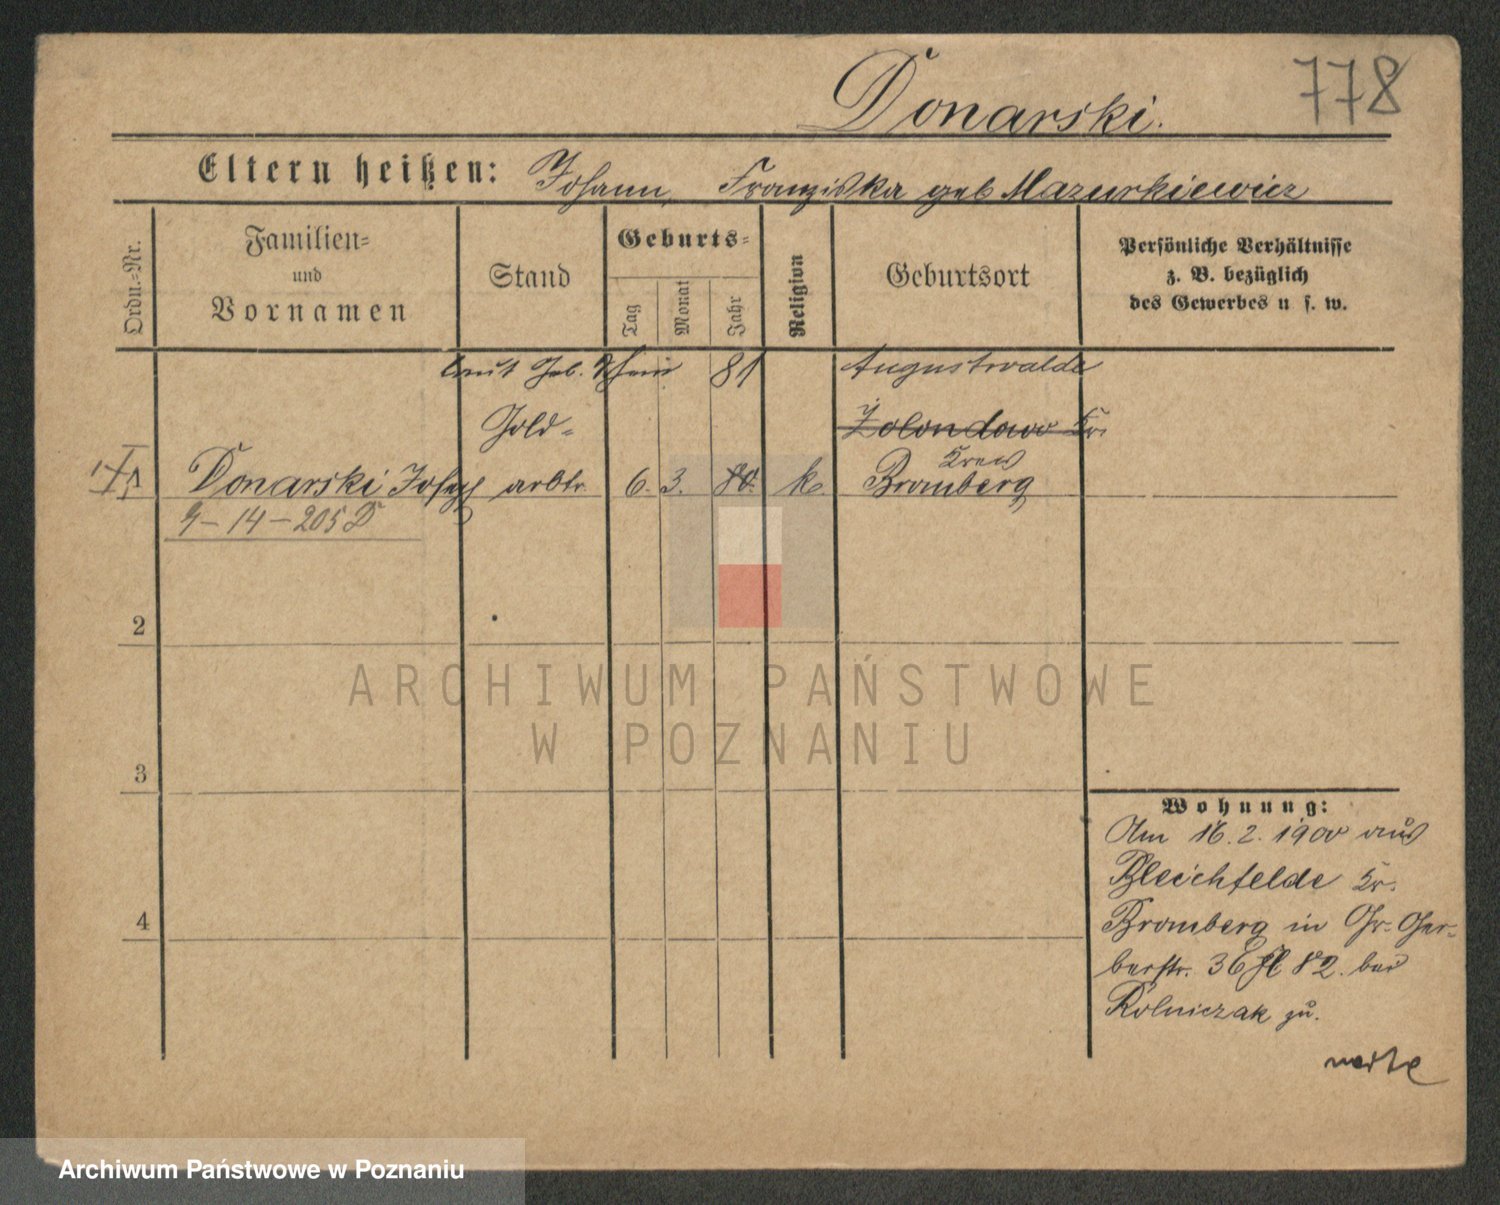 778
Donarski.
Eltern heißen: Johann, Franziska geb Mazurkiewicz
Ordn.-Nr.
Familien-
und
Vornamen
Stand
Geburts-
Tag
Monat
Jahr
Religion
Geburtsort
Persönliche Verhältnisse
z. B. bezüglich
des Gewerbes u s. w.
laut Geb. Schein 81 Augustwalde
Gold- Żolondowo Kr.
Donarski Josef arbtr. 6. 3. 80. k. Bromberg
9-14-205 D
2
3
4
Wohnung:
Am 16. 2. 1900 aus
Bleichfelde Kr.
Bromberg in Gr. Ger-
berstr. 36 82. bei
Rolniczak zu.
ARCHIWUM PAŃSTWOWE
W POZNANIU
Archiwum Państwowe w Poznaniu